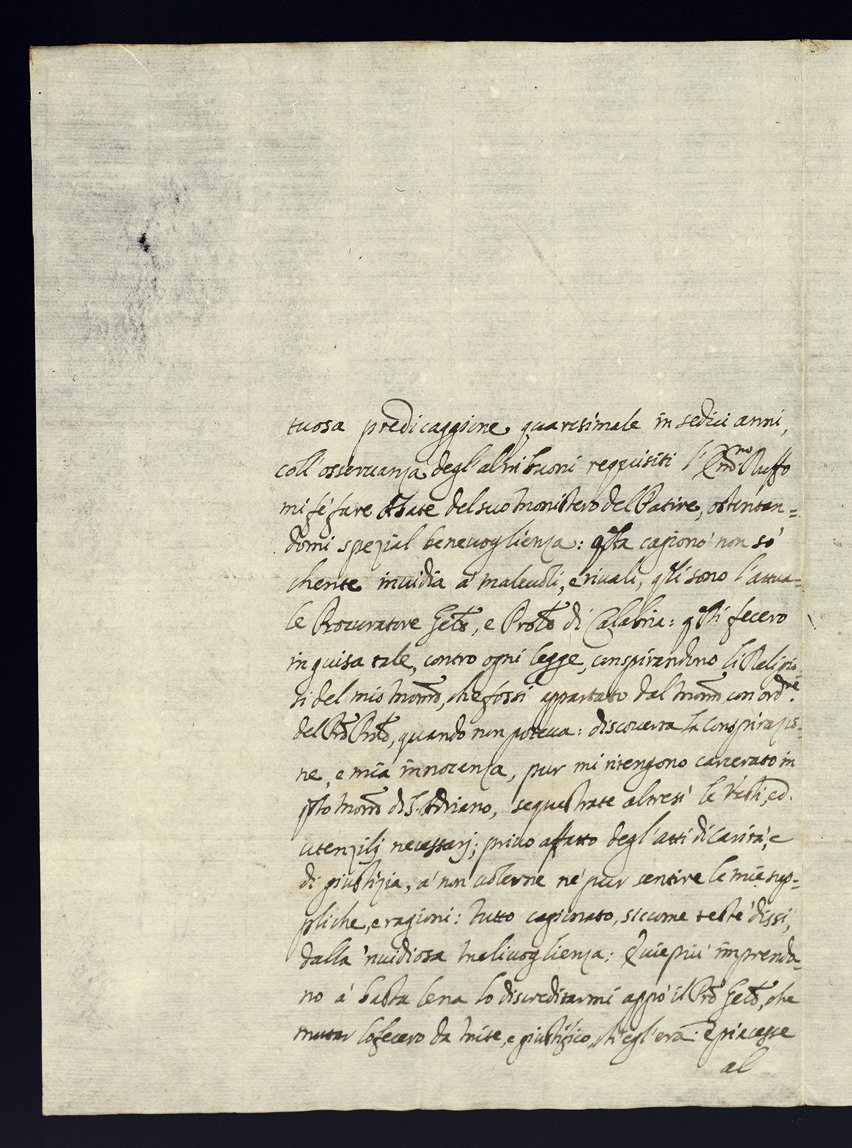 tuosa predicazzione quaresimale in sedici anni,
coll'osseruanza degl'altri buoni requisiti l'Em.mo Ruffo
mi fé fare Abate del suo monistero del Patire, ostentan=
domi spezial beneuoglienza: q.sta cagionò non sò
chente inuidia a' maleuoli, e riuali, q.li sono l'attua=
le Procuratore Gen.le, e Pro.le di Calabria: q.sti fecero
in guisa tale, contro ogni legge, conspirandono li Religio
si del mio mon.ro, che fossi appartato dal mon.ro con ord.e
del P.re Pro.le, quando non poteua: discouerta la conspirazio=
ne, e mia innocenza, pur mi ritengono carcerato in
q.sto mon.ro di S. Adriano, sequestrate altresì le Vesti, ed
utenzilj necessarj; priuo affatto degl'atti di carità, e
di giustizia, a' non uolerne ne' pur sentire le mie sup=
pliche, e ragioni: tutto cagionato, siccome testè dissi,
dalla 'nuidiosa maliuoglienza: Quie più imprenda=
no a' basta lena lo discreditarmi appò il P.re Gen.le, che
mutar lo fecero da mite, e giustifico, ch'egl'era: e piacesse
al